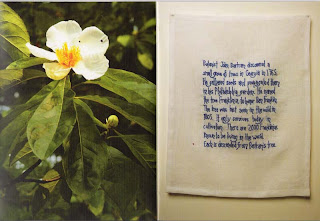 Botanist John Bartram discovered a
small grove of trees in Georgia in 1765.
He gathered seeds and propagated them
in his Philadelphia garden. He named
the tree Franklinia, to honor Ben Franklin.
The tree was last seen in the wild in
1803. It only survives today in
cultivation. There are 2000 Franklinias
known to be living in the world.
Each is descended from Bartram's tree.